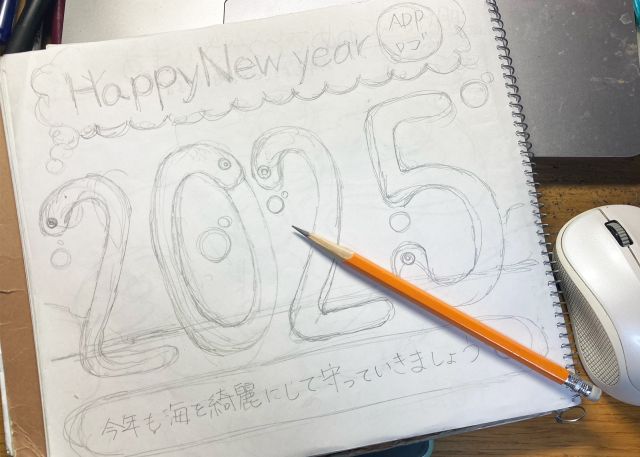 Happy New year
ADP
ロゴ
2025
今年も海を綺麗にして守っていきましょう